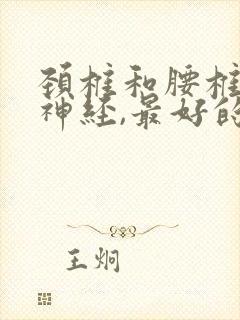 颈椎和腰椎
神经,最好的
王炯